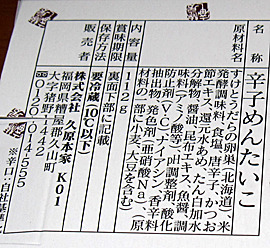 名称 辛子めんたいこ
原材料名 すけとうだらの卵巣(北海道)、米
発酵調味料、食塩、唐辛子、かつお
節エキス、還元水あめ、たん白加水
分解物、醤油、昆布エキス、魚醤、調
味料(アミノ酸等)、pH調整剤、酸化
防止剤(V.C)、ナイアシン、香辛料
抽出物、発色剤(亜硝酸Na)、(原
材料の一部に小麦、大豆を含む)
内容量 112g
賞味期限 裏面下部に記載
保存方法 要冷蔵(10℃以下)
販売者 株式会社 久原本家 K01
福岡県糟屋郡久山町
大字猪野1442
0120-014-555
※辛口:自社基準比